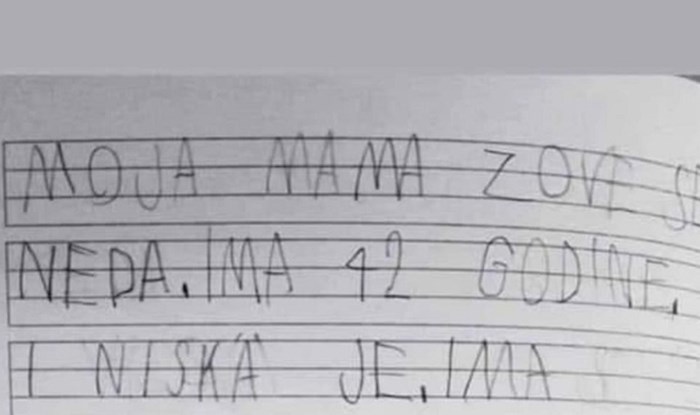 MOJA MAMA ZOVE SE
NEDA. IMA 42 GODINE.
I NISKA JE. IMA